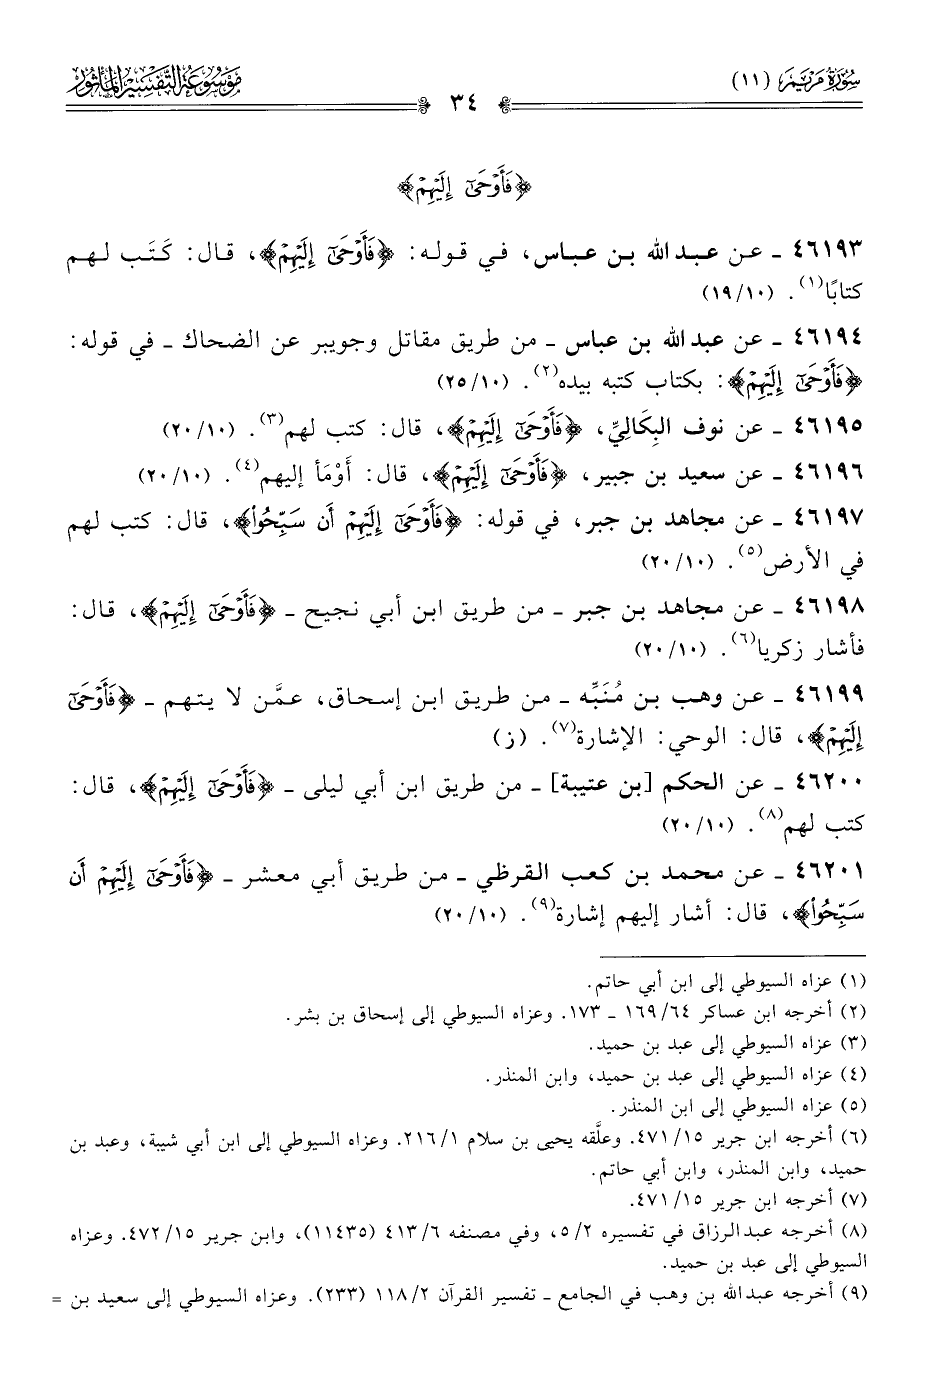 سُورَةُ مَرْيَمَ (١١)
٣٤
مَوْسُوعَةُ التَّفْسِيرِ المَأْثُور
﴿فَأَوْحَىٰٓ إِلَيْهِمْ﴾
٤٦١٩٣ ـ عن عبد الله بن عباس، في قوله: ﴿فَأَوْحَىٰٓ إِلَيْهِمْ﴾، قال: كَتَب لهم
كتابًا(١). (١٩/١٠)
٤٦١٩٤ ـ عن عبد الله بن عباس ـ من طريق مقاتل وجويبر عن الضحاك ـ في قوله:
﴿فَأَوْحَىٰٓ إِلَيْهِمْ﴾: بكتاب كتبه بيده(٢). (٢٥/١٠)
٤٦١٩٥ ـ عن نوف البِكَالِيِّ، ﴿فَأَوْحَىٰٓ إِلَيْهِمْ﴾، قال: كتب لهم(٣). (٢٠/١٠)
٤٦١٩٦ ـ عن سعيد بن جبير، ﴿فَأَوْحَىٰٓ إِلَيْهِمْ﴾، قال: أَوْمَأ إليهم(٤). (٢٠/١٠)
٤٦١٩٧ ـ عن مجاهد بن جبر، في قوله: ﴿فَأَوْحَىٰٓ إِلَيْهِمْ أَن سَبِّحُوا۟﴾، قال: كتب لهم
في الأرض(٥). (٢٠/١٠)
٤٦١٩٨ ـ عن مجاهد بن جبر ـ من طريق ابن أبي نجيح ـ ﴿فَأَوْحَىٰٓ إِلَيْهِمْ﴾، قال:
فأشار زكريا(٦). (٢٠/١٠)
٤٦١٩٩ ـ عن وهب بن مُنَبِّه ـ من طريق ابن إسحاق، عمَّن لا يتهم ـ ﴿فَأَوْحَىٰٓ
إِلَيْهِمْ﴾، قال: الوحي: الإشارة(٧). (ز)
٤٦٢٠٠ ـ عن الحكم [بن عتيبة] ـ من طريق ابن أبي ليلى ـ ﴿فَأَوْحَىٰٓ إِلَيْهِمْ﴾، قال:
كتب لهم(٨). (٢٠/١٠)
٤٦٢٠١ ـ عن محمد بن كعب القرظي ـ من طريق أبي معشر ـ ﴿فَأَوْحَىٰٓ إِلَيْهِمْ أَن
سَبِّحُوا۟﴾، قال: أشار إليهم إشارة(٩). (٢٠/١٠)
(١) عزاه السيوطي إلى ابن أبي حاتم.
(٢) أخرجه ابن عساكر ٦٤/ ١٦٩ ـ ١٧٣. وعزاه السيوطي إلى إسحاق بن بشر.
(٣) عزاه السيوطي إلى عبد بن حميد.
(٤) عزاه السيوطي إلى عبد بن حميد، وابن المنذر.
(٥) عزاه السيوطي إلى ابن المنذر.
(٦) أخرجه ابن جرير ١٥/ ٤٧١. وعلَّقه يحيى بن سلام ١/ ٢١٦. وعزاه السيوطي إلى ابن أبي شيبة، وعبد بن
حميد، وابن المنذر، وابن أبي حاتم.
(٧) أخرجه ابن جرير ١٥/ ٤٧١.
(٨) أخرجه عبد الرزاق في تفسيره ٢/ ٥، وفي مصنفه ٦/ ٤١٣ (١١٤٣٥)، وابن جرير ١٥/ ٤٧٢. وعزاه
السيوطي إلى عبد بن حميد.
(٩) أخرجه عبد الله بن وهب في الجامع ـ تفسير القرآن ٢/ ١١٨ (٢٣٣). وعزاه السيوطي إلى سعيد بن =